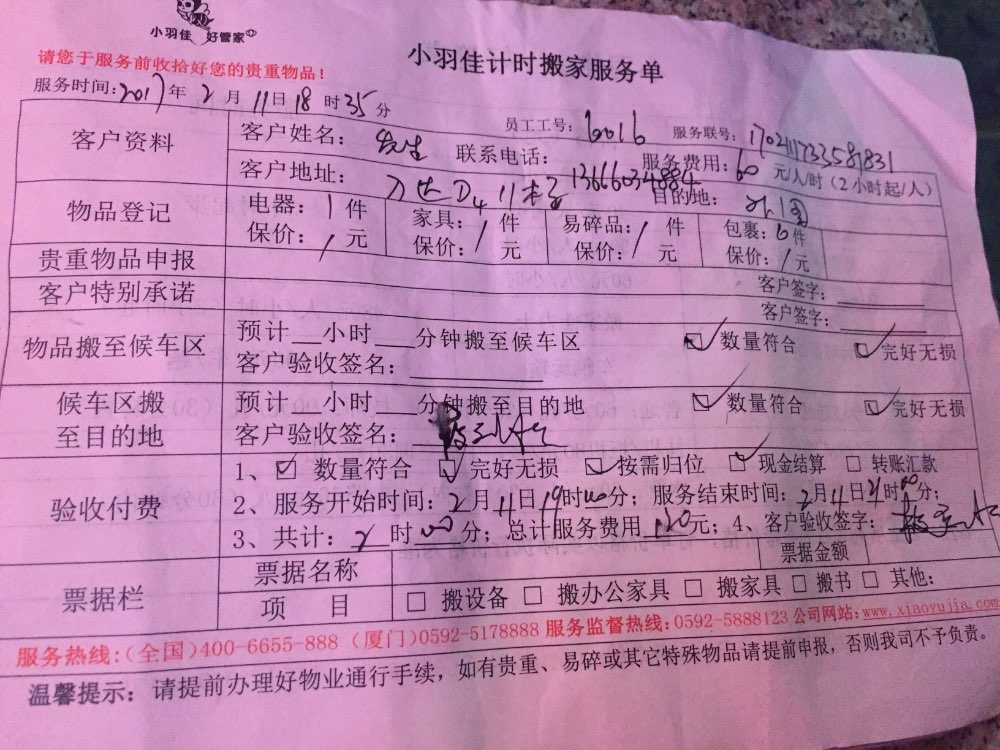 小羽佳 好管家
小羽佳计时搬家服务单
请您于服务前收拾好您的贵重物品！
服务时间：2017年2月11日18时35分 员工工号：6016 服务联号：1702111733581831
客户资料 客户姓名： 联系电话：13666034884 服务费用：60元/人/时（2小时起/人）
客户地址：万达D4 11 目的地：
物品登记 电器：1件 家具：/件 易碎品：/件 包裹：6件
保价：/元 保价：/元 保价：/元 保价：/元
贵重物品申报 客户签字：
客户特别承诺 客户签字：
物品搬至候车区 预计__小时___分钟搬至候车区 ☑数量符合 ☑完好无损
客户验收签名：
候车区搬至目的地 预计__小时___分钟搬至目的地 ☑数量符合 ☑完好无损
客户验收签名：
验收付费 1、☑数量符合 ☑完好无损 ☑按需归位 ☑现金结算 □转账汇款
2、服务开始时间：2月11日19时00分；服务结束时间：2月11日21时00分；
3、共计：2时00分；总计服务费用120元；4、客户验收签字：
票据栏 票据名称 票据金额
项 目 □搬设备 □搬办公家具 □搬家具 □搬书 □其他：
服务热线：（全国）400-6655-888（厦门）0592-5178888 服务监督热线：0592-5888123 公司网站：www.xiaoyujia.com
温馨提示：请提前办理好物业通行手续，如有贵重、易碎或其它特殊物品请提前申报，否则我司不予负责。